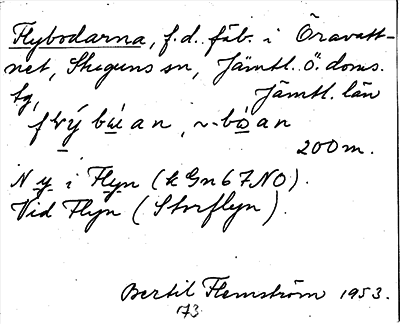 Flybodarna, f.d. fäb. i Öravatt-
net, Stuguns sn, Jämtl. ö. doms.
tg, Jämtl. län
200 m.
N y i Flyn (k Gn67NO).
Vid Flyn (Storflyn).
Bertil Flemström 1953.
73